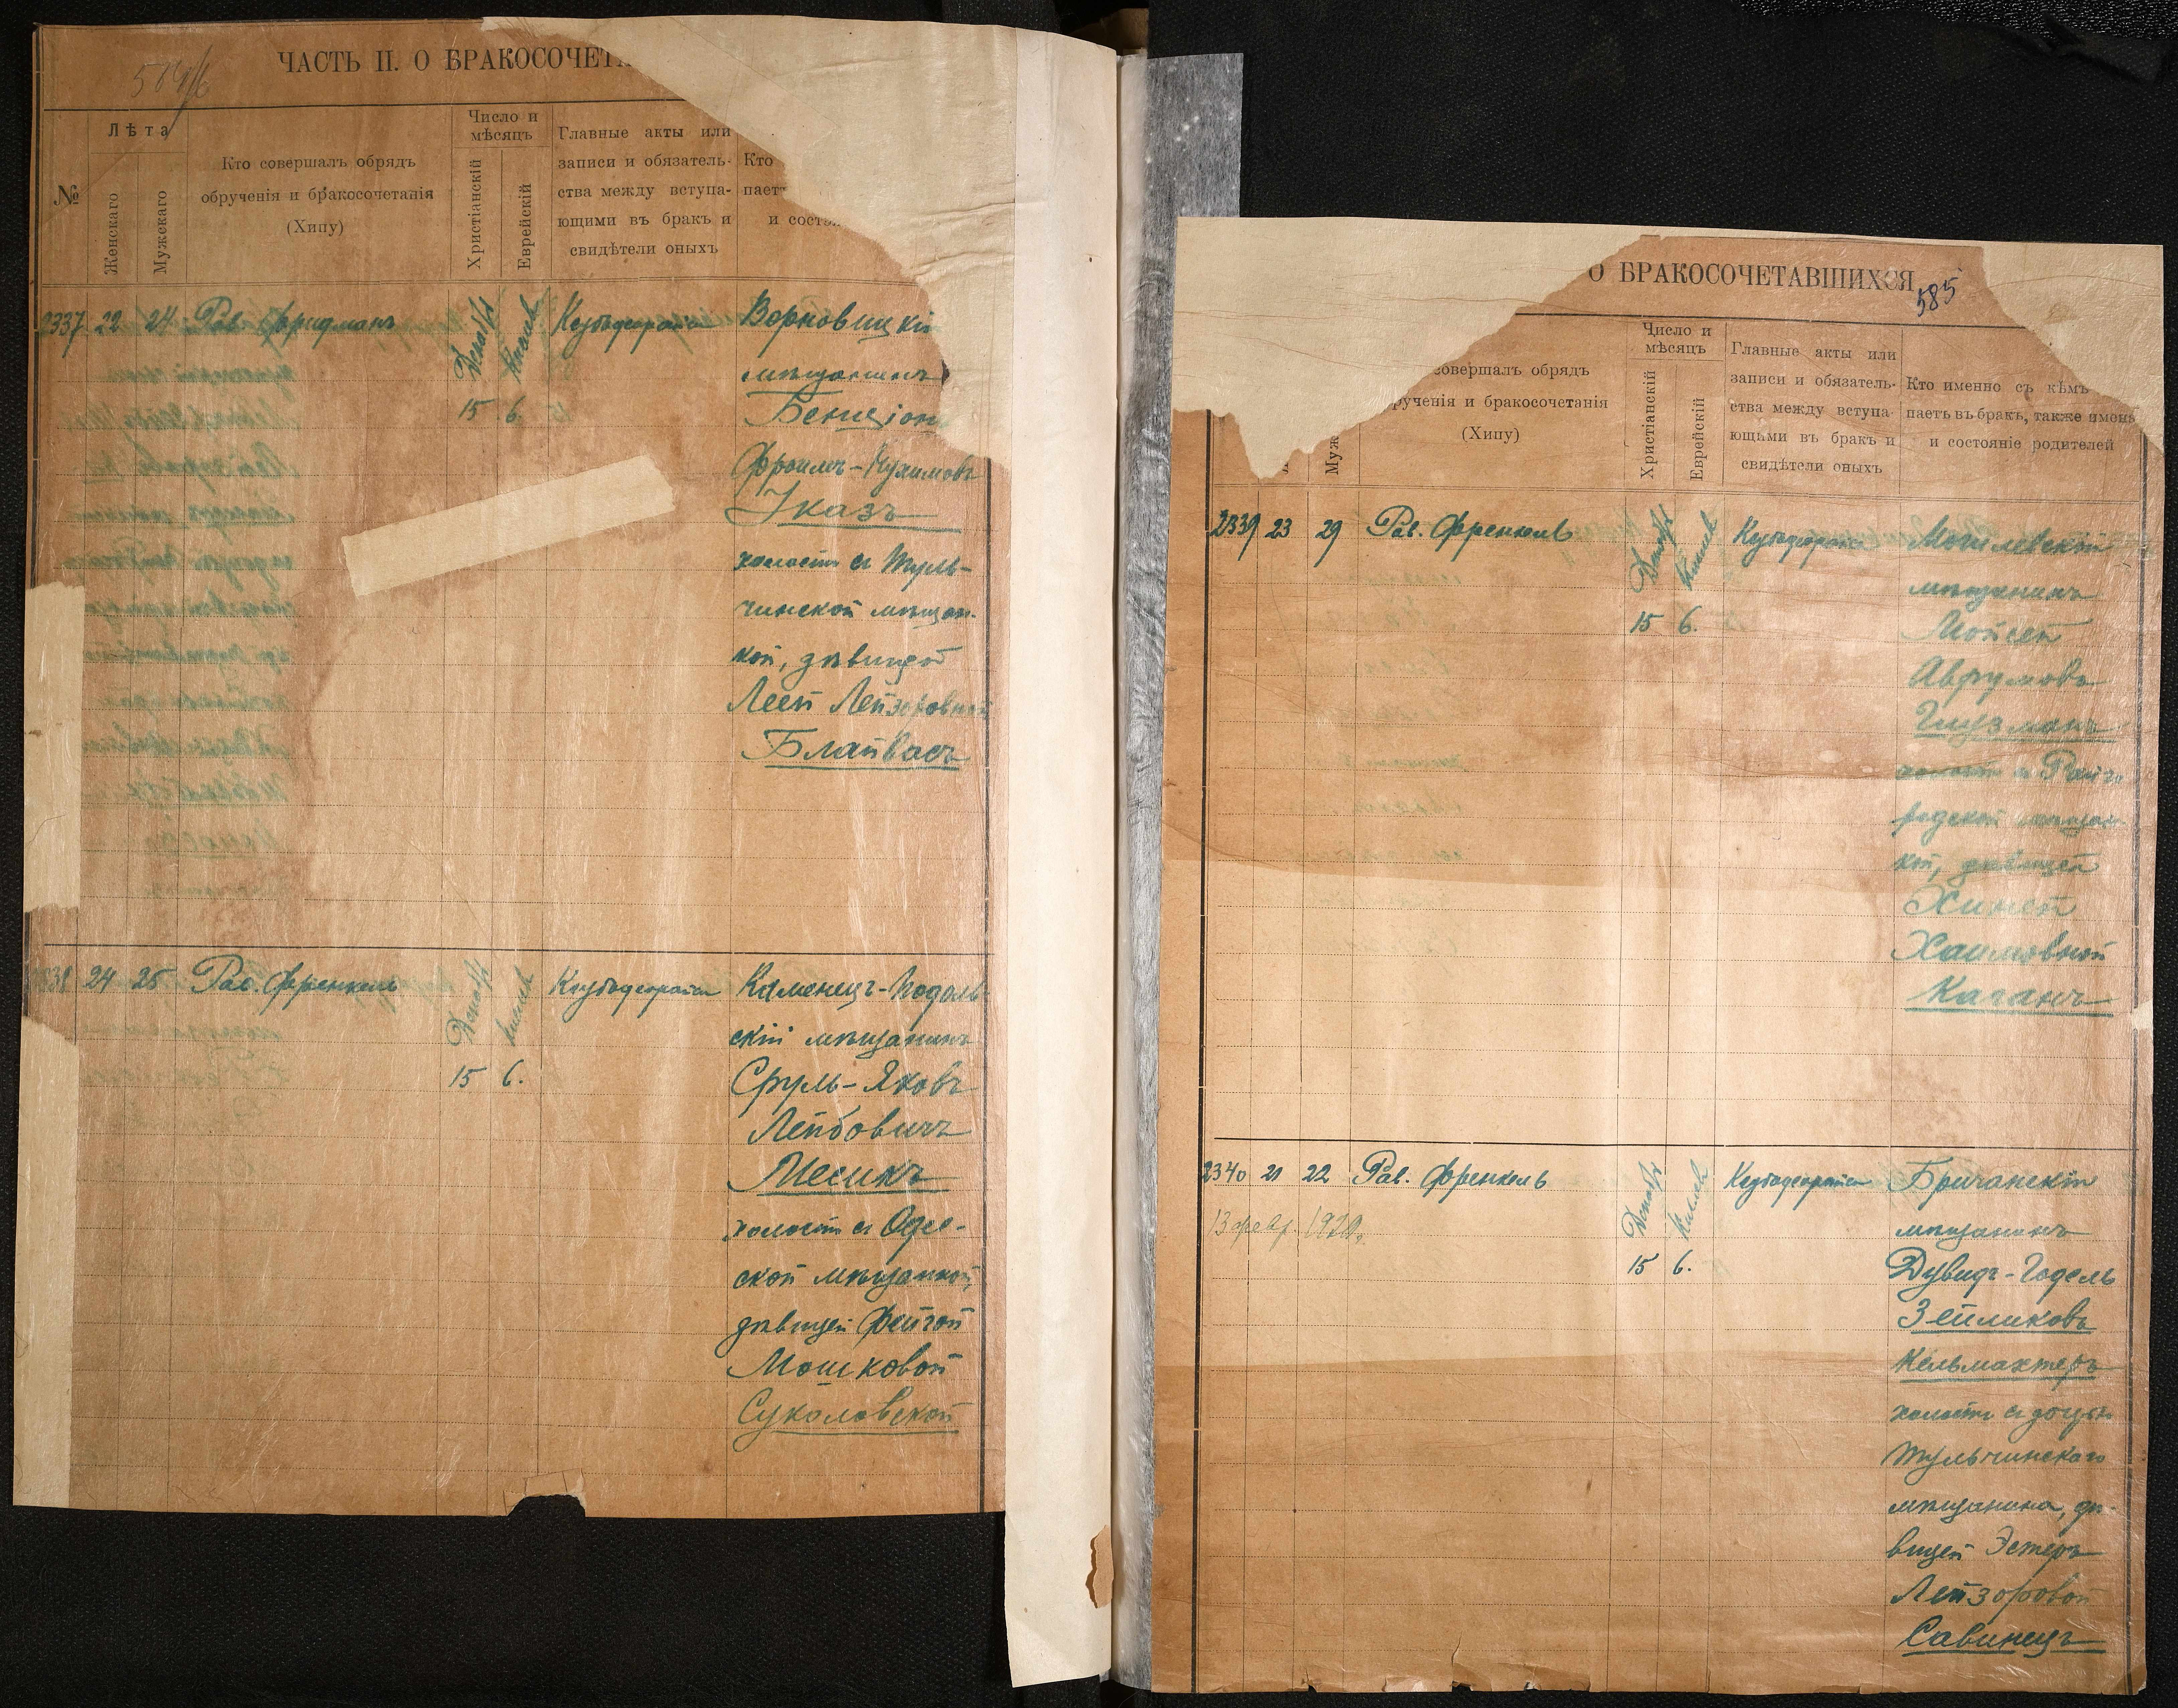 584/б
ЧАСТЬ II. О БРАКОСОЧЕТА
№
Лѣта
Женскаго
Мужескаго
Кто совершалъ обрядъ
обрученія и бракосочетанія
(Хипу)
Число и
мѣсяцъ
Христіанскій
Еврейскій
Главные акты или
записи и обязатель-
ства между вступа-
ющими въ бракъ и
свидѣтели оныхъ
Кто
пает
и сост
2337 22 24 Рав. Фридманъ Декабрь Кислев
15 6.
Ворновицкі
мѣщанинъ
Бенціон
Фроимъ-Нухимовъ
Указъ
холостъ съ Туль-
чинской мѣщан-
кой, дѣвицей
Леей Лейзоровной
Блайвасъ
24 25 Рав. Френкель Декабрь Кислев
15 6.
Каменецъ-Подоль
скій мѣщанинъ
Сруль-Яковъ
Лейбовичъ
Месикъ
холостъ съ Одес-
ской мѣщанкой,
дѣвицей Фейгой
Мошковой
Суколовской
О БРАКОСОЧЕТАВШИХСЯ
585
Муж
совершалъ обрядъ
рученія и бракосочетанія
(Хипу)
Число и
мѣсяцъ
Христіанскій
Еврейскій
Главные акты или
записи и обязатель-
ства между вступа-
ющими въ бракъ и
свидѣтели оныхъ
Кто именно съ кѣмъ
паетъ въ бракъ, также имена
и состояніе родителей
2339 23 29 Рав. Френкель Декабрь Кислев
15 6.
Могилевскій
мѣщанинъ
Мойсей
Аврумовъ
Глузманъ
холостъ съ Райго
родской мѣщан-
кой, дѣвицей
Хиней
Хаимовной
Каганъ
2340 21 22 Рав. Френкель Декабрь Кислев
13 февр. 1920.
15 6.
Бричанскій
мѣщанинъ
Дувидъ-Годель
Зейликовъ
Кельмахтеръ
холостъ съ дочерью
Тульчинскаго
мѣщанина, дѣ-
вицей Эстеръ
Лейзоровой
Савинецъ